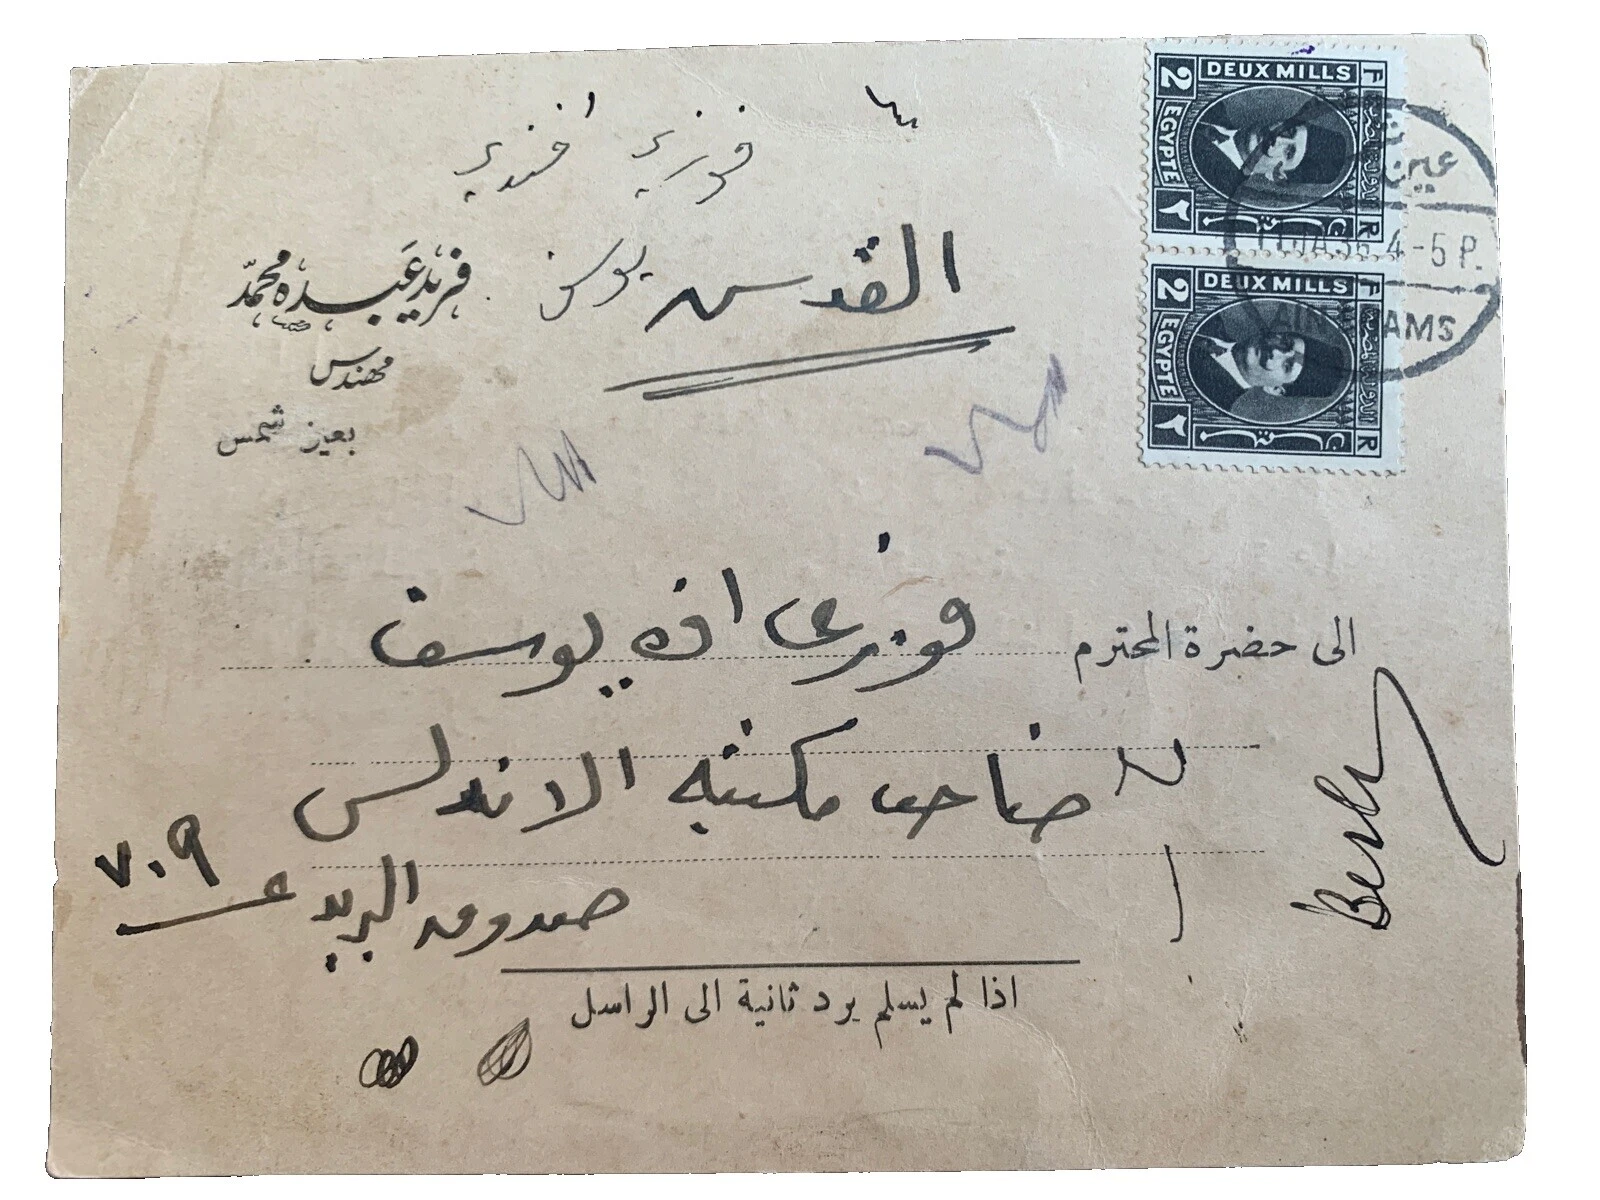 فوزي افندي
القدس يوسف
فريد عبده محمد
مهندس
بعين شمس
DEUX MILLS
2
EGYPTE
٢
F
R
DEUX MILLS
2
EGYPTE
٢
F
R
عين
JA 36 4-5 P.
AIN AMS
الى حضرة المحترم فوزي افندي يوسف
صاحب مكتبة الاندلس
صندوق البريد ع ٧٠٩
اذا لم يسلم يرد ثانية الى الراسل